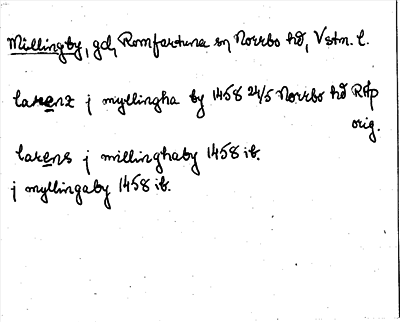 Millingby, gd, Romfartuna sn Norrbo hd, Vstm. l.
larenz j myllingha by 1458 24/5 Norrbo hd RAp
orig.
larens j millinghaby 1458 ib.
j myllingaby 1458 ib.